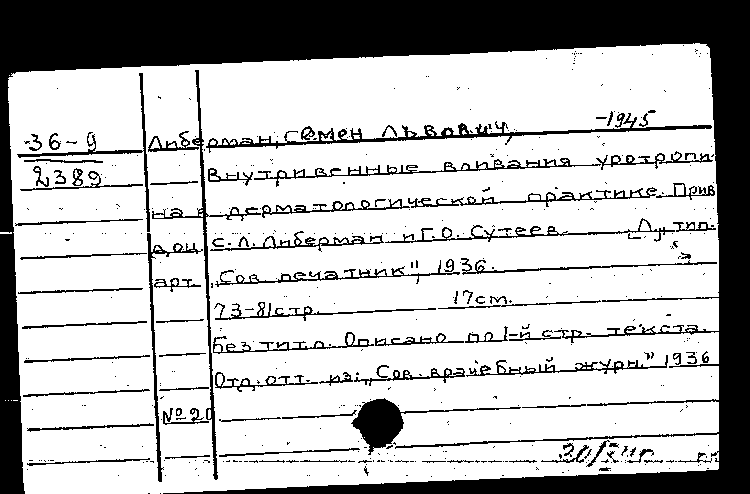 36-9
2389
Либерман, Семен Львович, -1945
Внутривенные вливания уротропи-
на в дерматологической практике. Прив
доц. С.Л. Либерман и Г.О. Сутеев. [Л], тип.
арт. „Сов. печатник", 1936.
73-81 стр. 17 см.
Без титл. Описано по 1-й стр. текста.
Отд. отт. из: „Сов. врачебный журн." 1936
№ 20